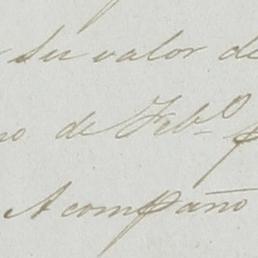 su valor de
no de Feb.º p
Acompaño